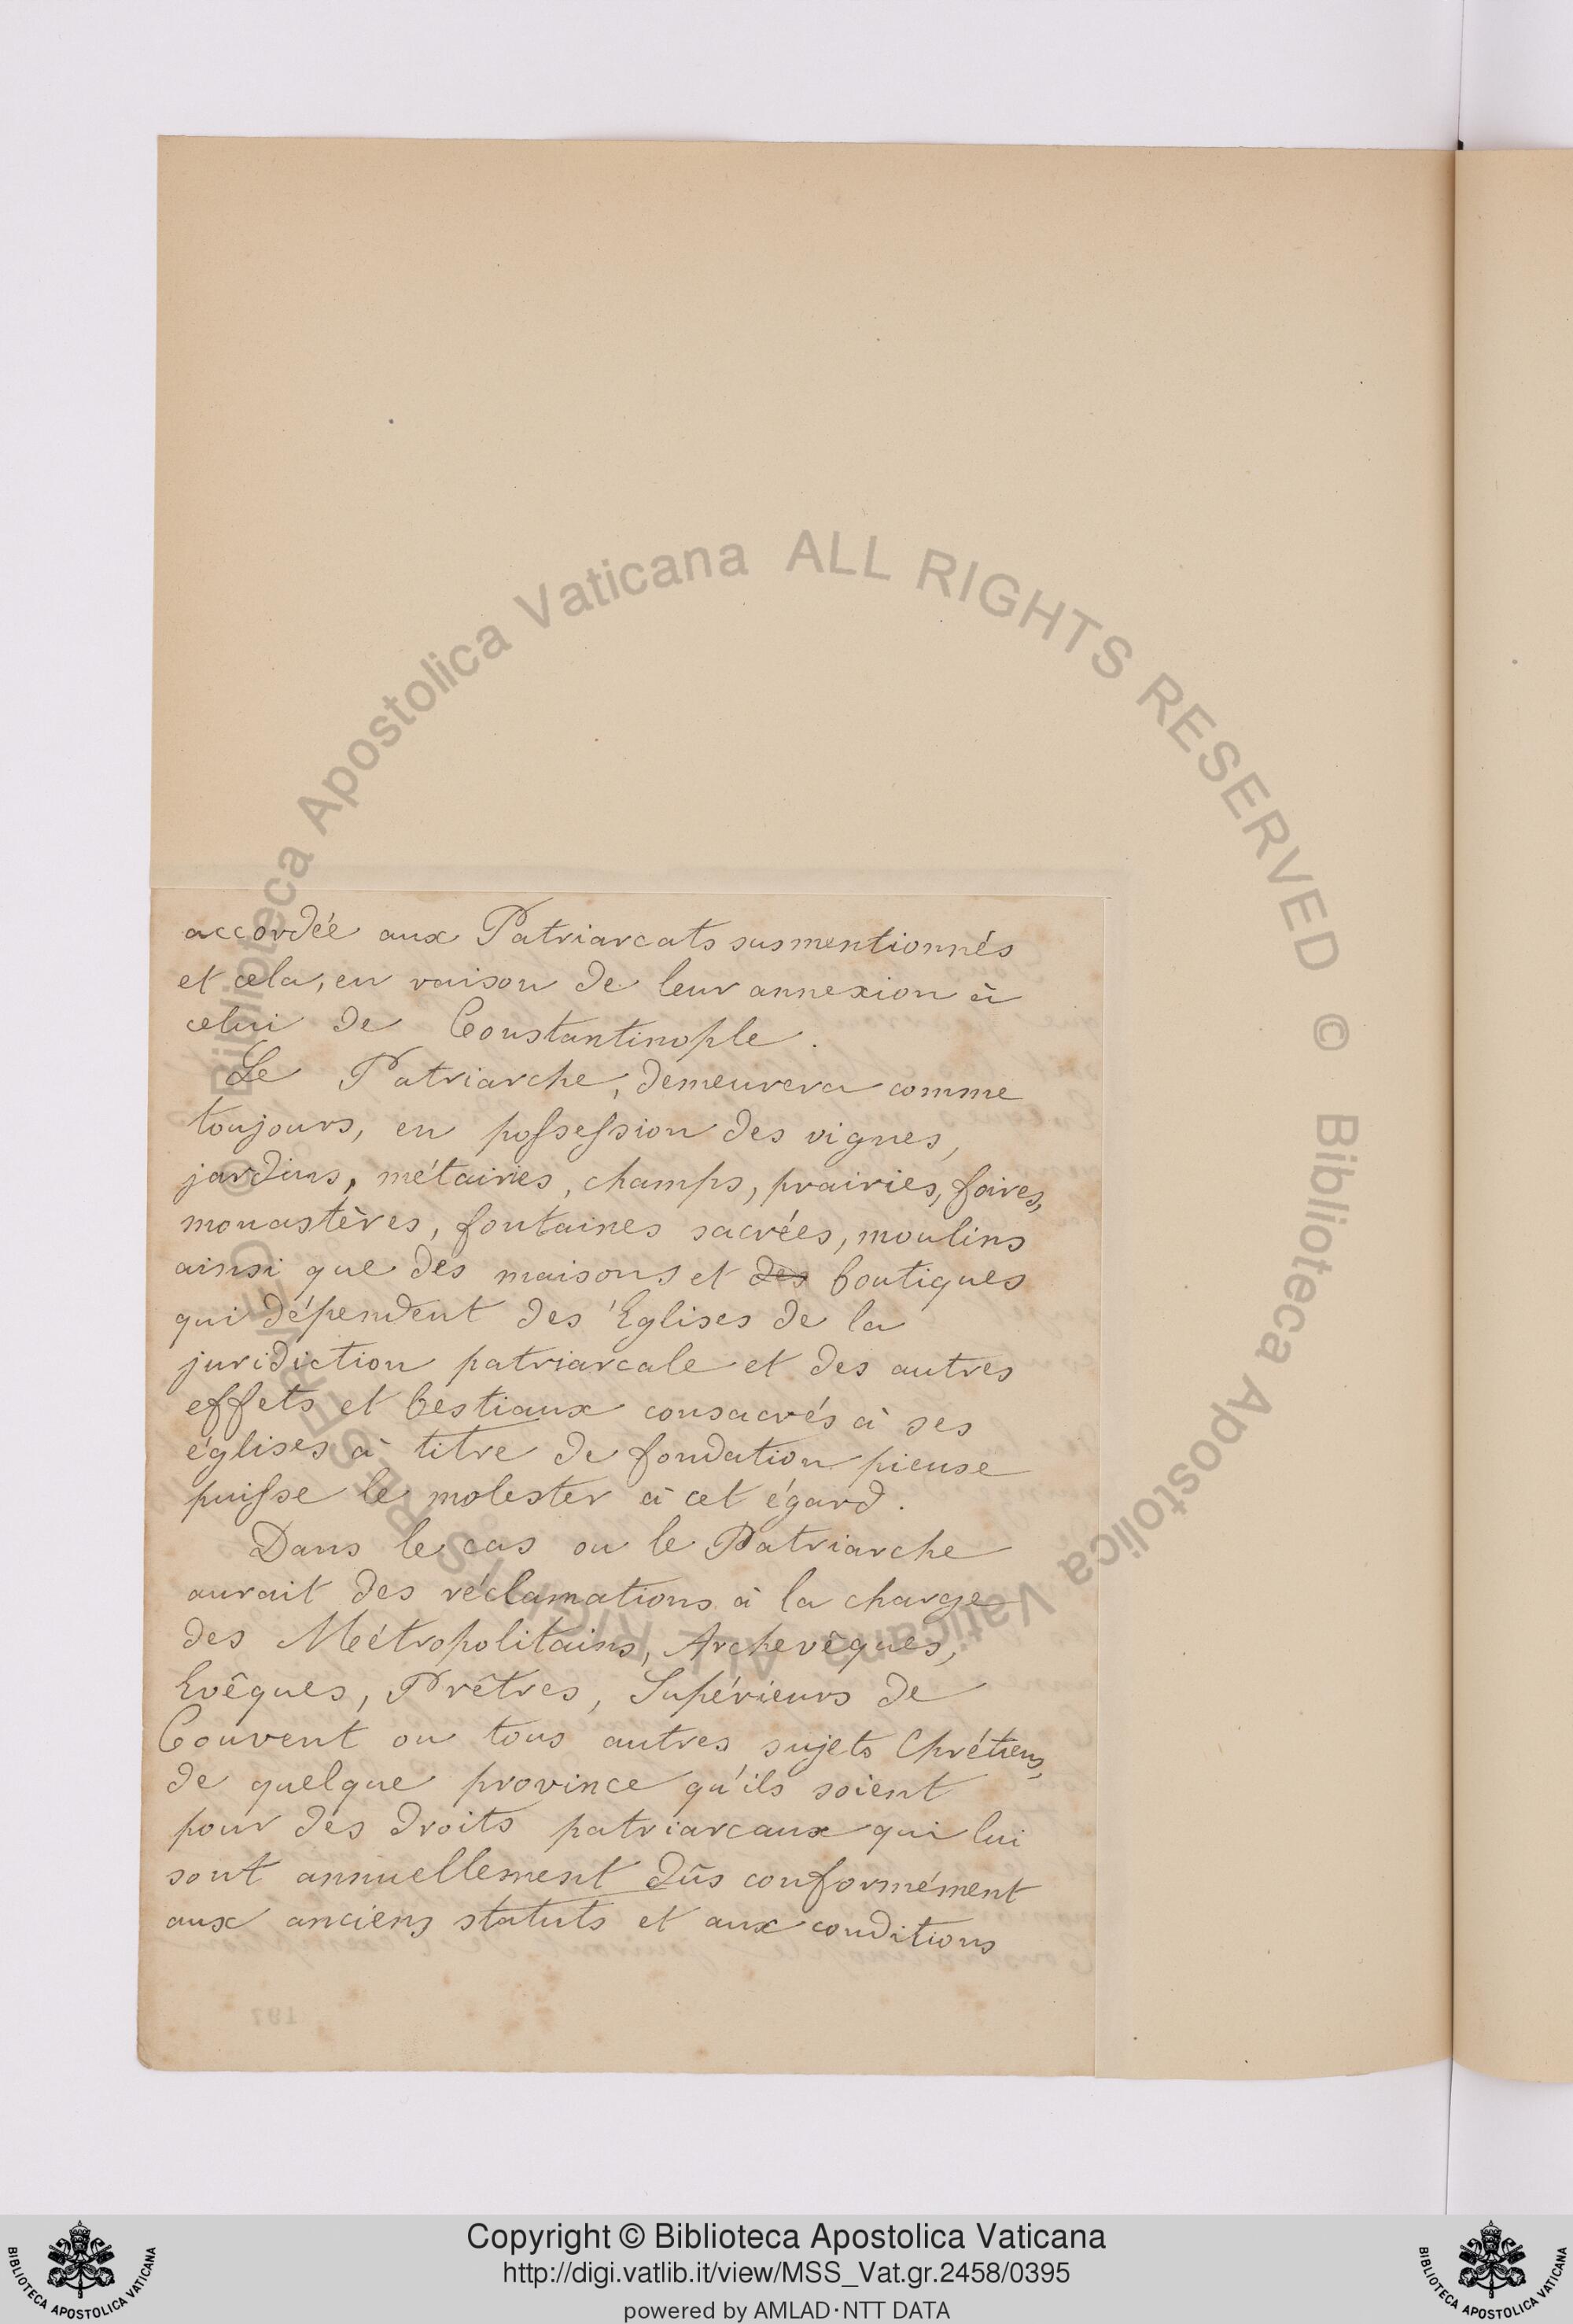 accordée aux Patriarcats susmentionnés
et cela, en raison de leur annexion à
celui de Constantinople.
Le Patriarche, demeurera comme
toujours, en possession des vignes,
jardins, métairies, champs, prairies, foires,
monastères, fontaines sacrées, moulins
ainsi que des maisons et des boutiques
qui dépendent des Eglises de la
juridiction patriarcale et des autres
effets et bestiaux consacrés à ses
églises à titre de fondation pieuse
puisse le molester à cet égard.
Dans le cas ou le Patriarche
aurait des réclamations à la charge
des Métropolitains, Archevêques,
Evêques, Prêtres, Supérieurs de
Couvent ou tous autres sujets Chrétiens,
de quelque province qu'ils soient
pour des droits patriarcaux qui lui
sont annuellement dûs conformément
aux anciens statuts et aux conditions
197
© Biblioteca Apostolica Vaticana ALL RIGHTS RESERVED © Biblioteca Apostolica Vaticana ALL RIGHTS RESERVED
Copyright © Biblioteca Apostolica Vaticana
http://digi.vatlib.it/view/MSS_Vat.gr.2458/0395
powered by AMLAD·NTT DATA
BIBLIOTECA APOSTOLICA VATICANA
BIBLIOTECA APOSTOLICA VATICANA